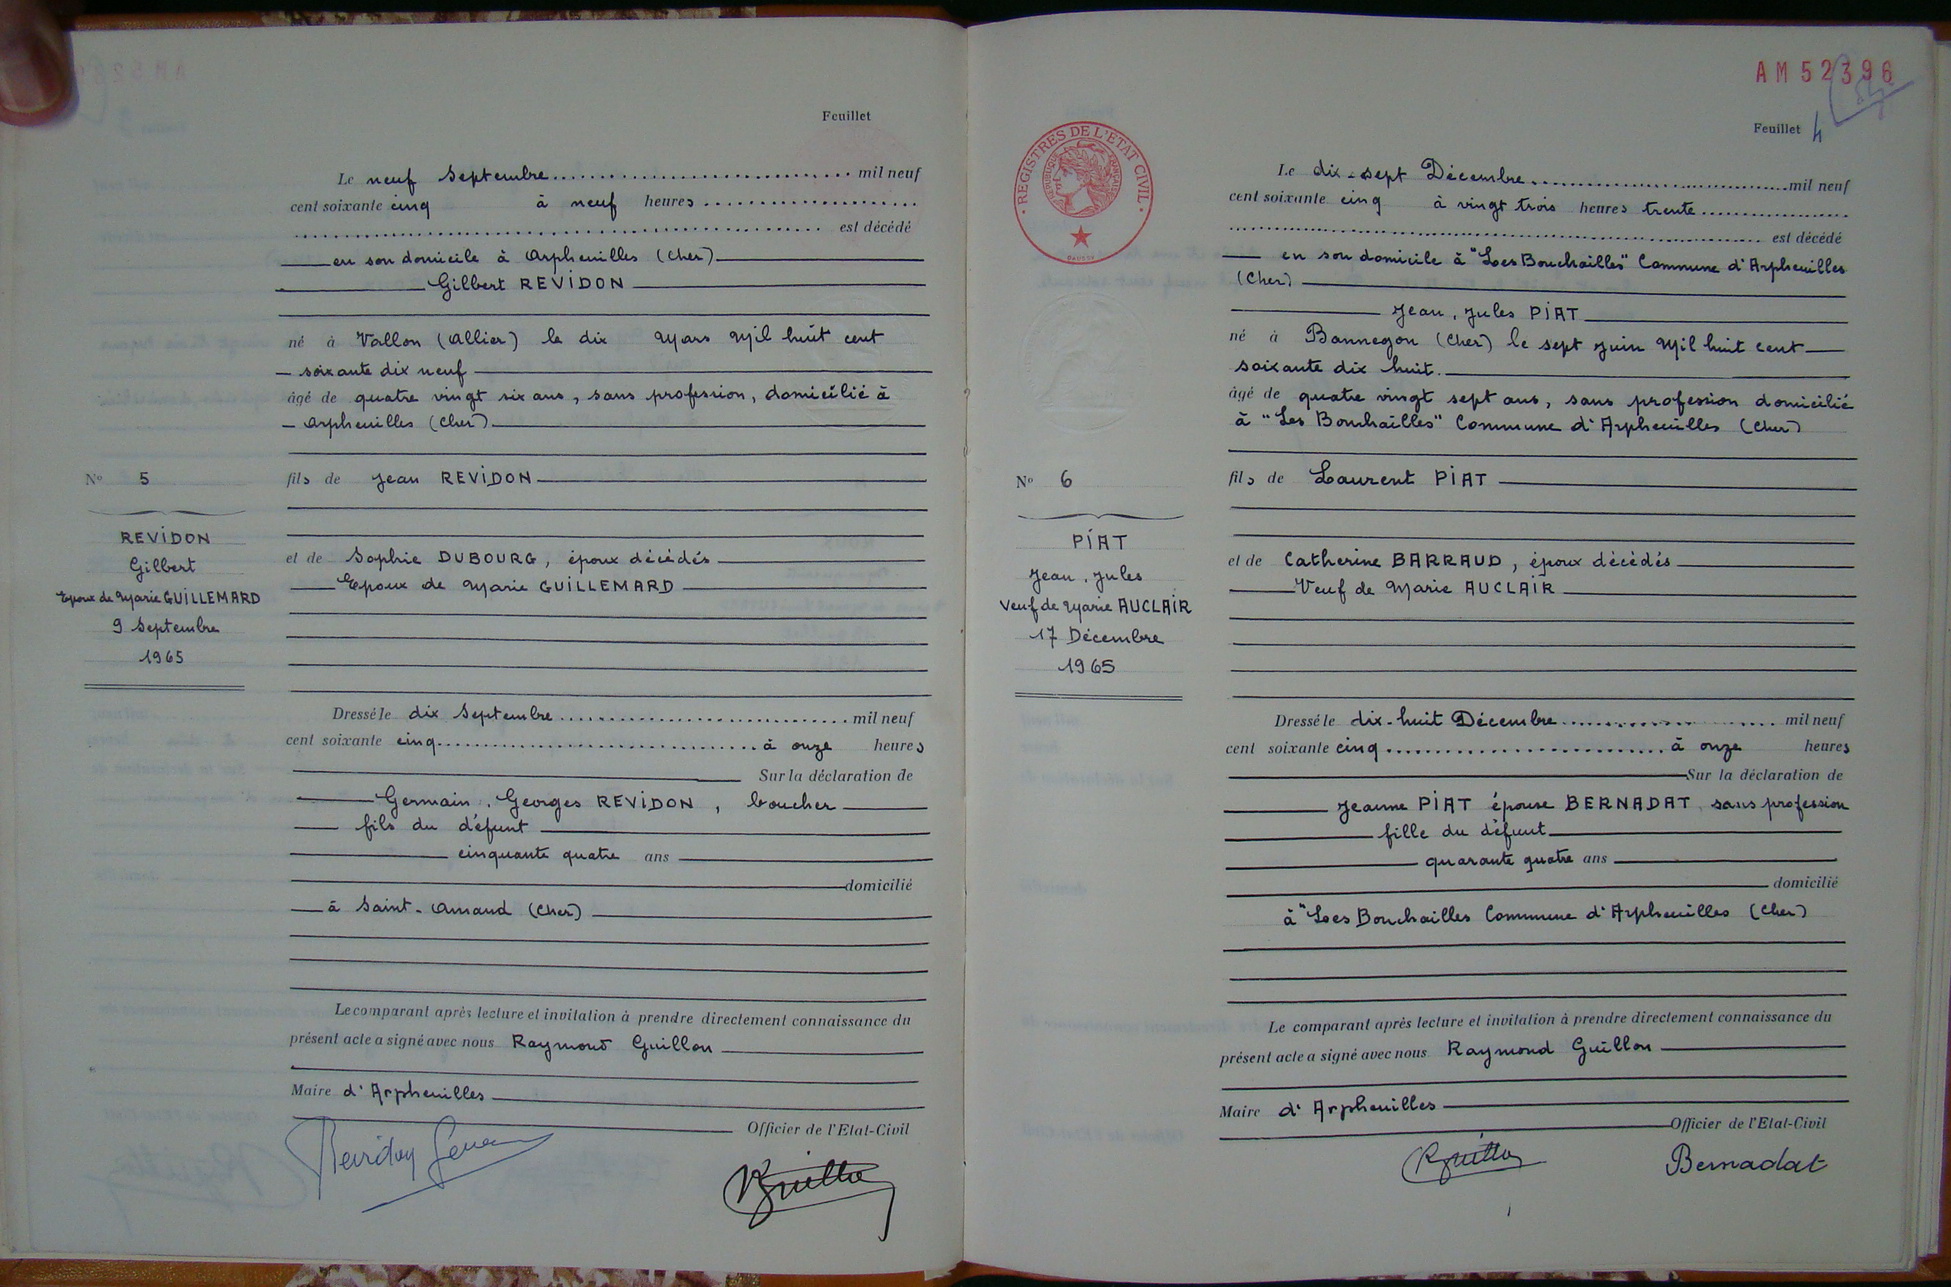 Feuillet
Le neuf Septembre mil neuf
cent soixante cinq à neuf heures
est décédé
en son domicile à Arpheuilles (Cher)
Gilbert REVIDON
né à Vallon (Allier) le dix Mars Mil huit cent
soixante dix neuf
âgé de quatre vingt six ans, sans profession, domicilié à
Arpheuilles (Cher)
N° 5
fils de Jean REVIDON
REVIDON
Gilbert
Epoux de Marie GUILLEMARD
9 Septembre
1965
et de Sophie DUBOURG, époux décédés
Epoux de Marie GUILLEMARD
Dressé le dix Septembre mil neuf
cent soixante cinq à onze heures
Sur la déclaration de
Germain, Georges REVIDON, boucher
fils du défunt
cinquante quatre ans
domicilié
à Saint-Amand (Cher)
Le comparant après lecture et invitation à prendre directement connaissance du
présent acte a signé avec nous Raymond Guillon
Maire d'Arpheuilles
Officier de l'Etat-Civil
AM 52396
Feuillet 4
REGISTRES DE L'ETAT CIVIL
REPUBLIQUE FRANÇAISE
Le dix-sept Décembre mil neuf
cent soixante cinq à vingt trois heures trente
est décédé
en son domicile à "Les Bouchailles" Commune d'Arpheuilles
(Cher)
Jean, Jules PIAT
né à Bannegon (Cher) le sept Juin Mil huit cent
soixante dix huit.
âgé de quatre vingt sept ans, sans profession domicilié
à "Les Bouchailles" Commune d'Arpheuilles (Cher)
N° 6
fils de Laurent PIAT
PIAT
Jean, Jules
Veuf de Marie AUCLAIR
17 Décembre
1965
et de Catherine BARRAUD, époux décédés
Veuf de Marie AUCLAIR
Dressé le dix-huit Décembre mil neuf
cent soixante cinq à onze heures
Sur la déclaration de
Jeanne PIAT épouse BERNADAT, sans profession
fille du défunt
quarante quatre ans
domicilié
à "Les Bouchailles Commune d'Arpheuilles (Cher)
Le comparant après lecture et invitation à prendre directement connaissance du
présent acte a signé avec nous Raymond Guillon
Maire d'Arpheuilles
Officier de l'Etat-Civil
Bernadat